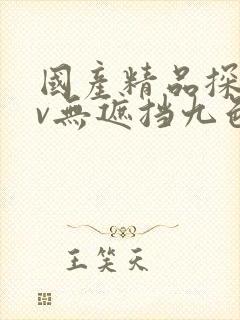 國產精品探
v無遮挡九色
王笑天